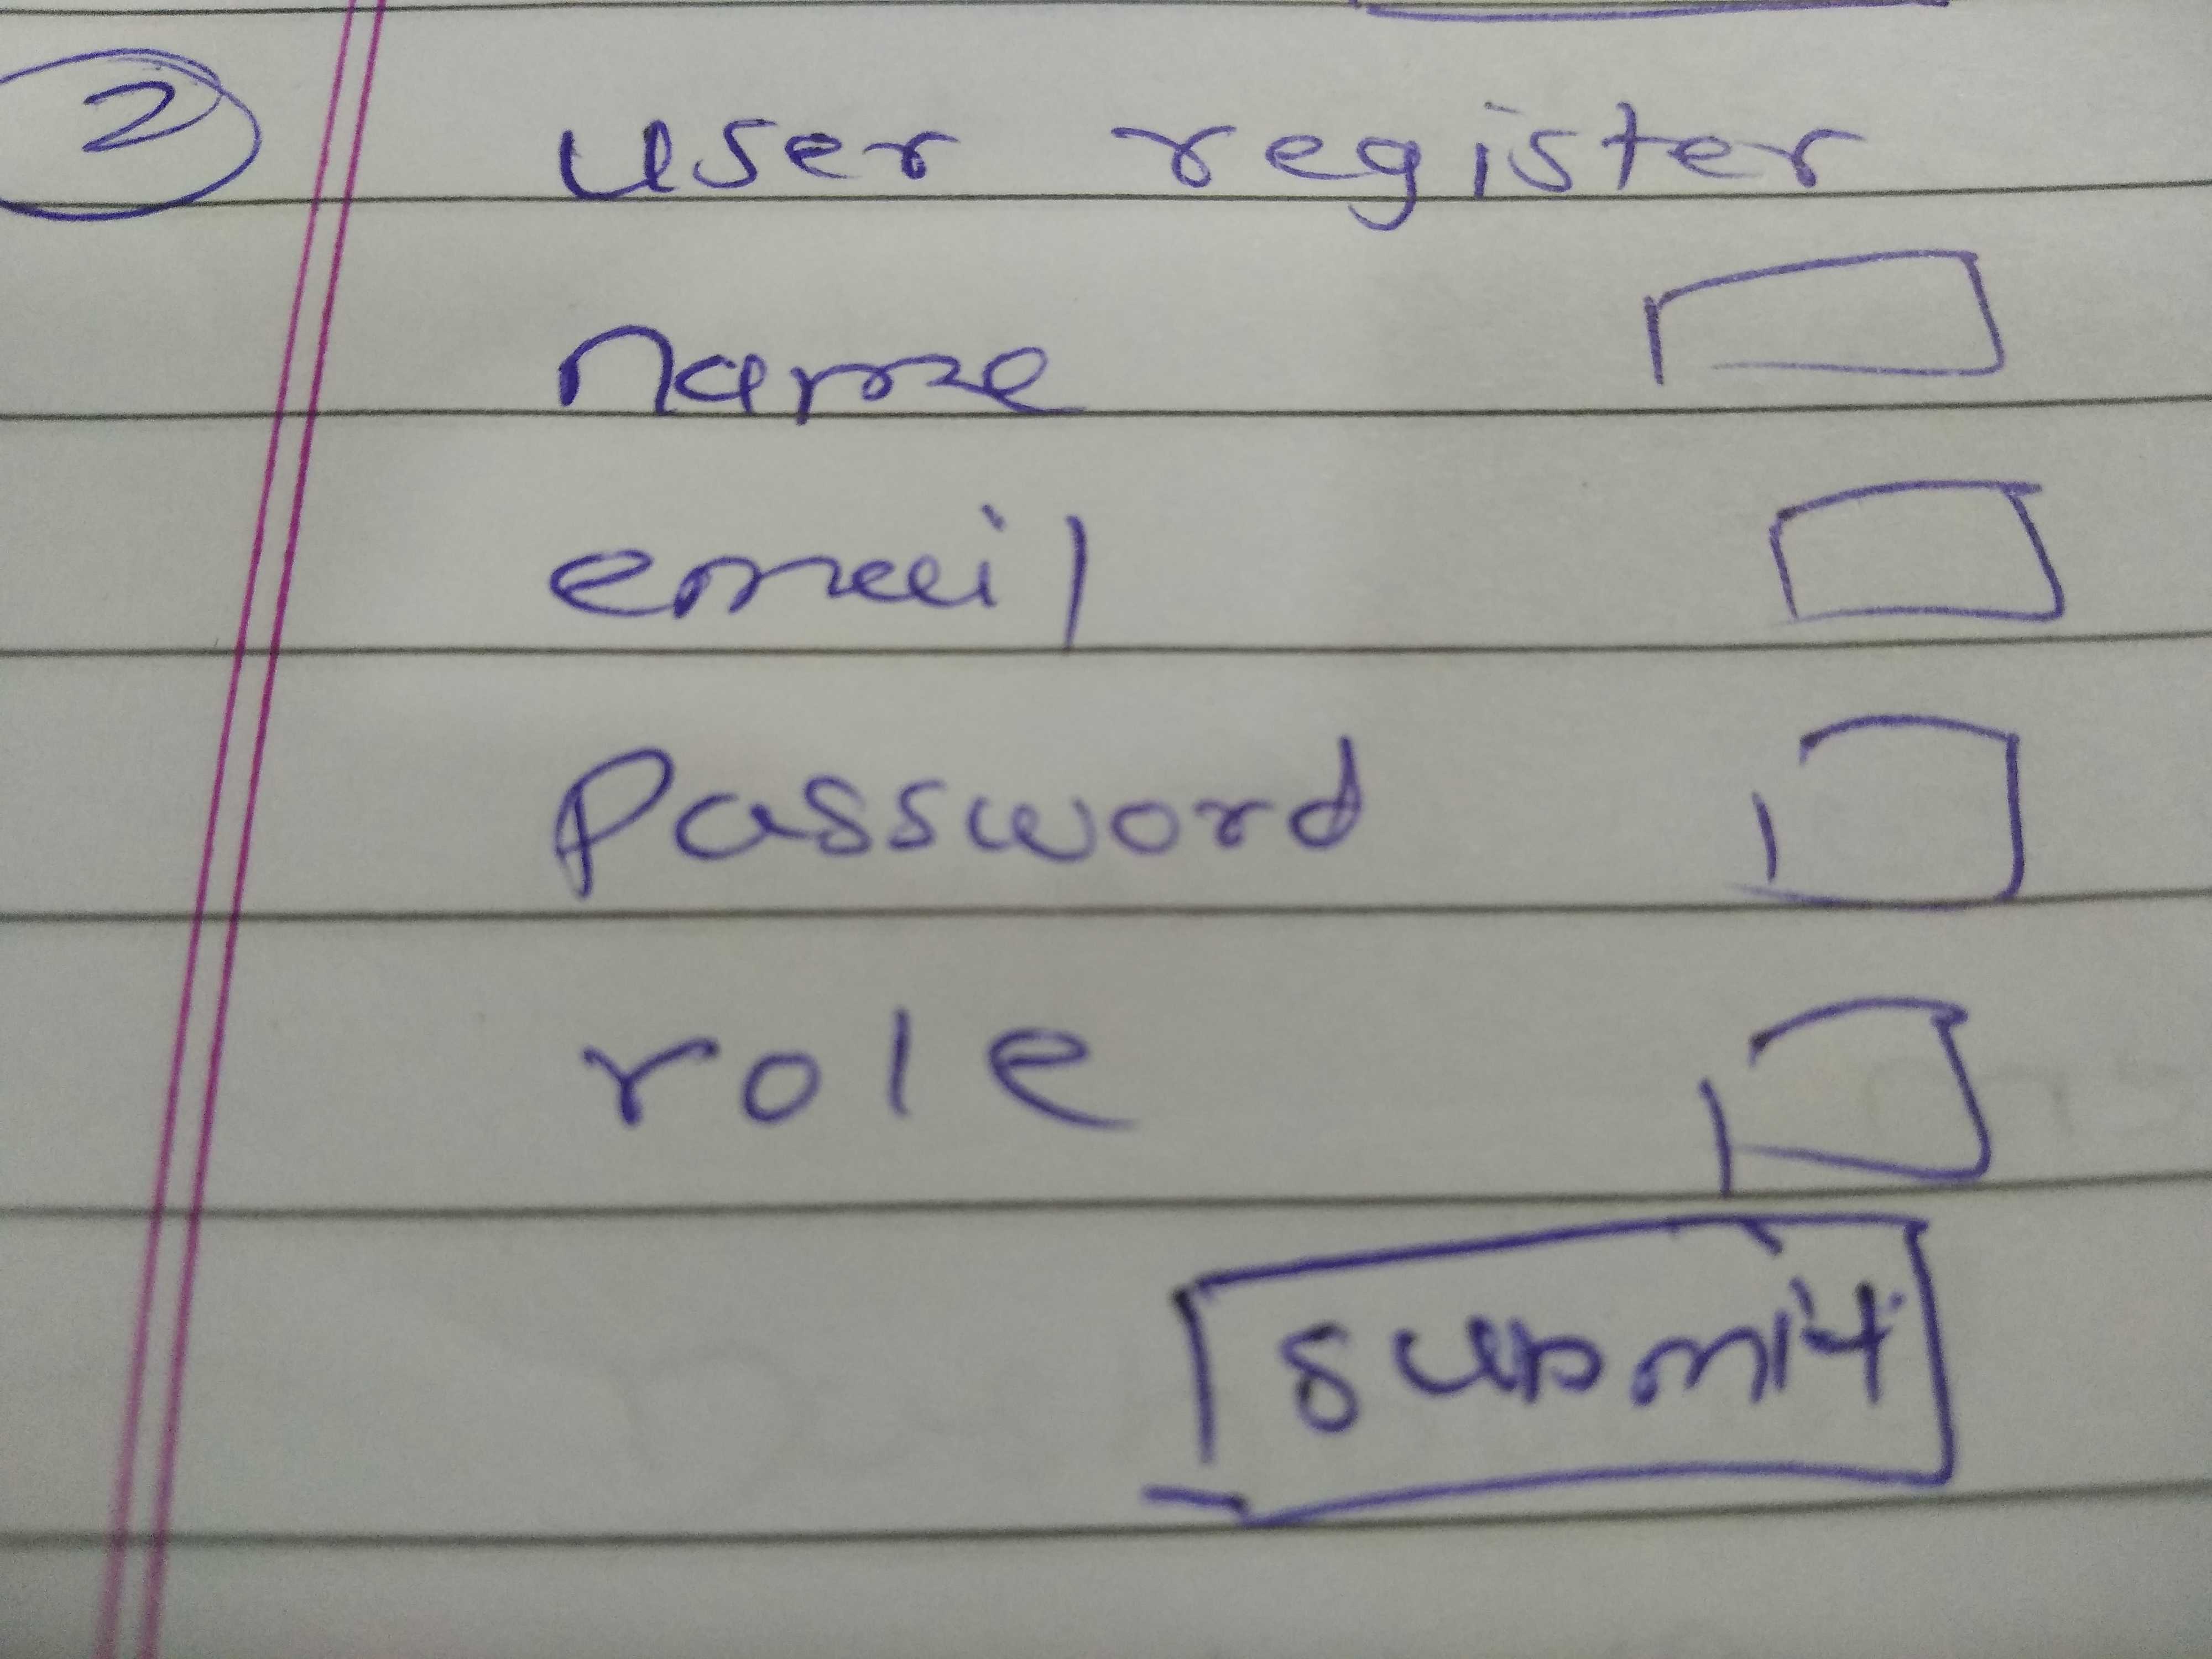 2 user register
name
email
Password
role
submit